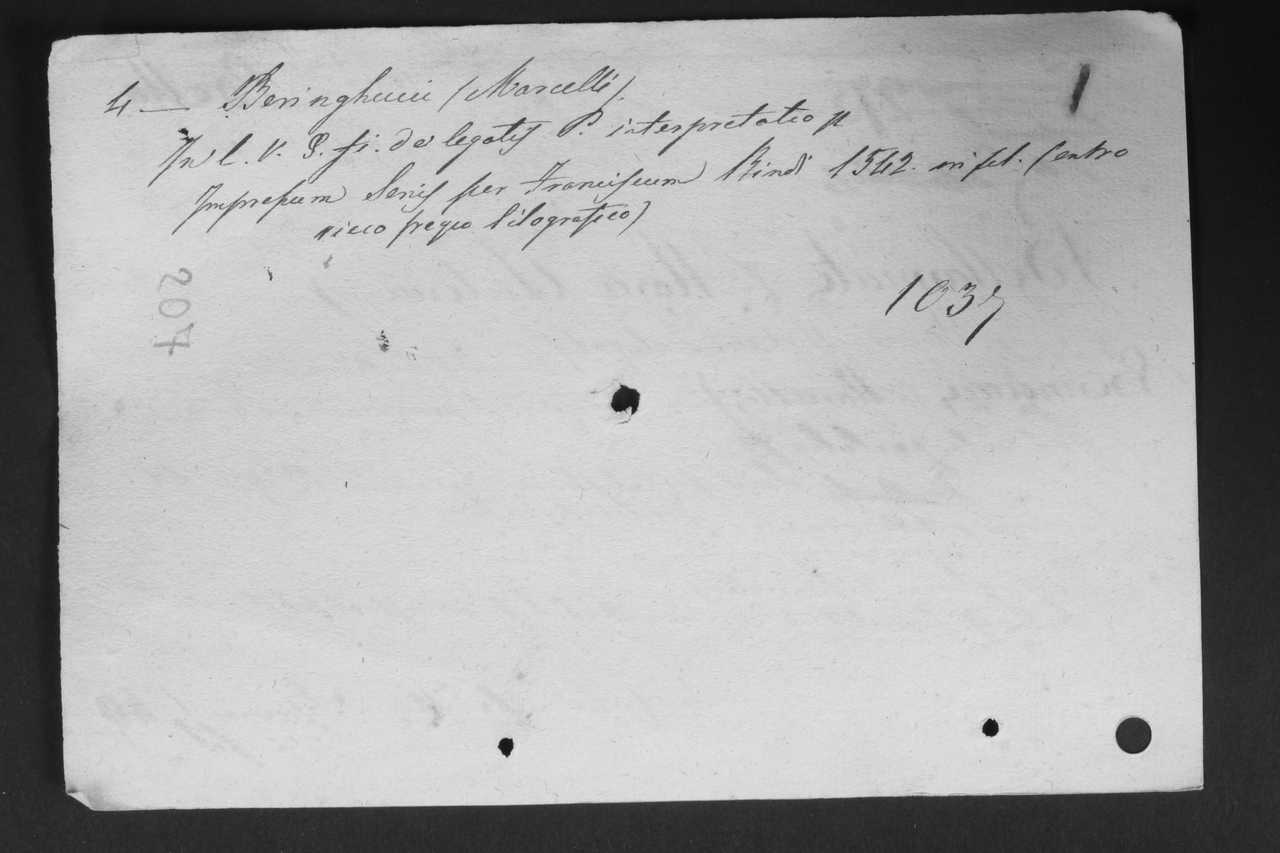 4 — Beringhucci (Marcelli).
In l. V. §. fi. de legatis P. interpretatio
Impressum Senis per Franciscum Bindi 1542. in fol. (entro
ricco fregio silografico)
1037
504